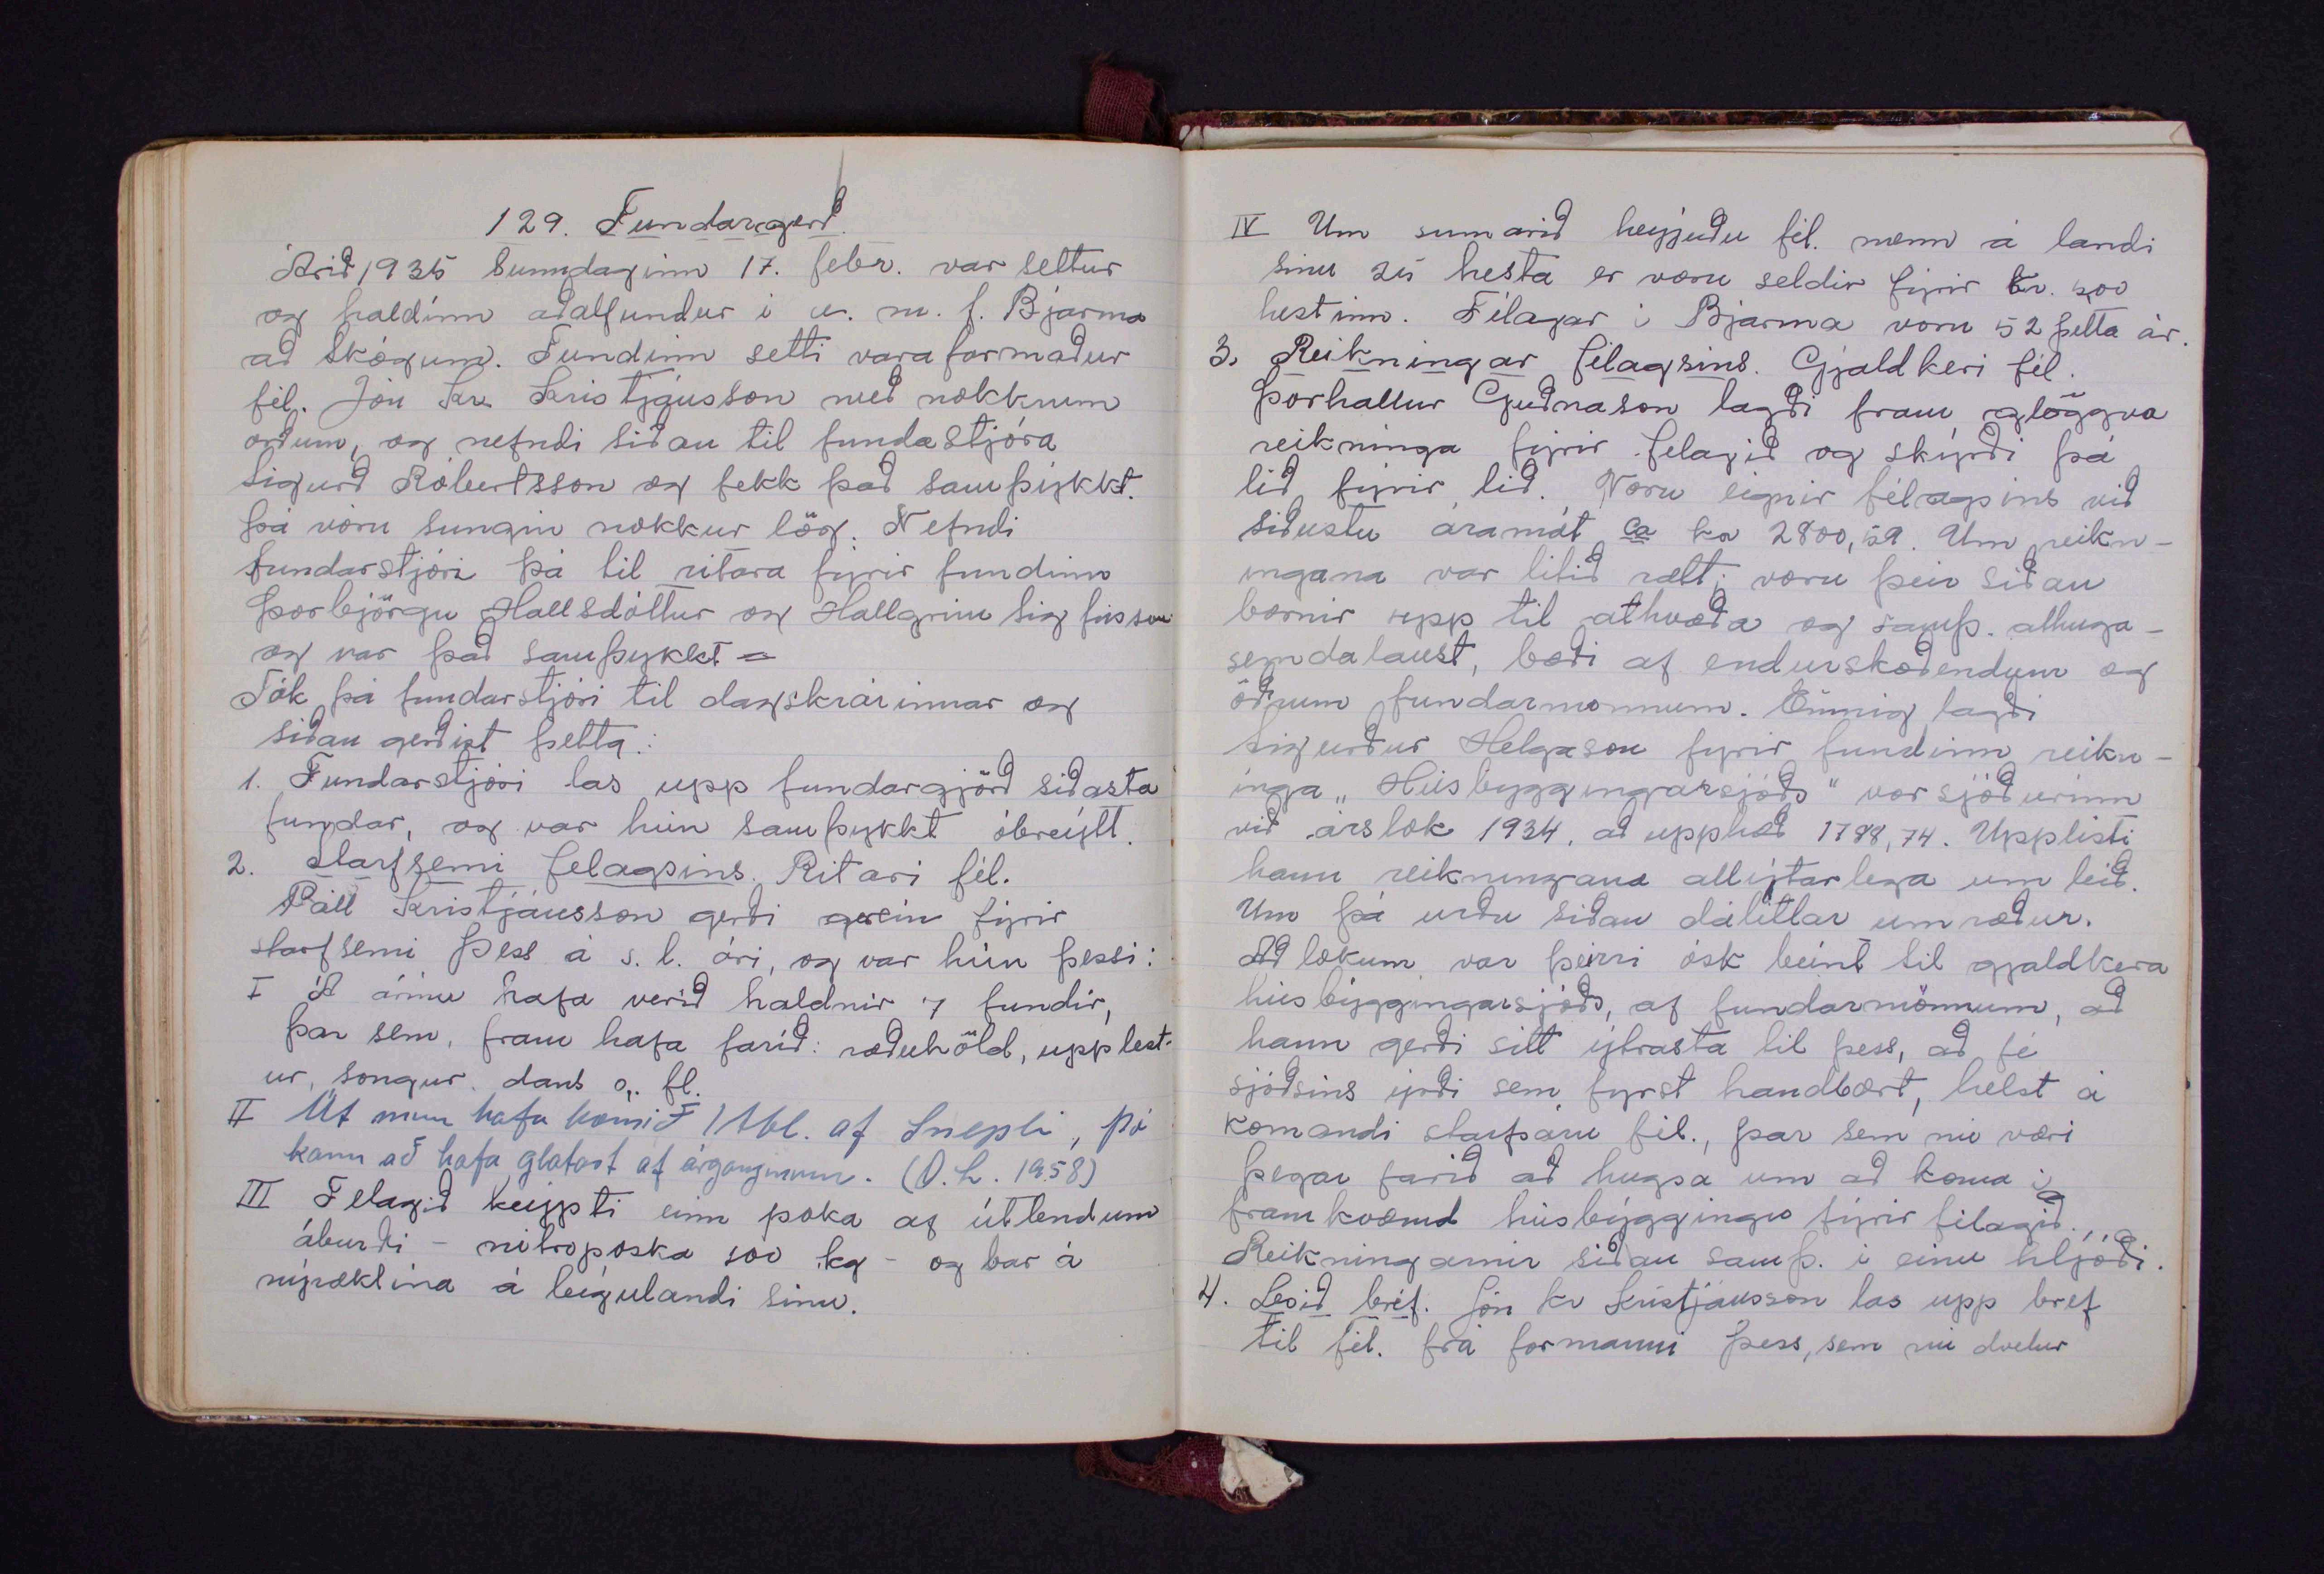 129. Fundargerd.
Árid 1935 Sunndaginn 17. febr. var settur
og haldinn adalfundur i u. m. f. Bjarma
ad Skógum. Fundinn setti varaformadur
fél. Jón Kr. Kristjánsson med nokkrum
ordum, og nefndi sidan til fundastjóra
Sigurd Róbertsson og fekk þad samþykkt.
þá voru sungin nokkur lög. Nefndi
fundarstjóri þá til ritara fyrir fundinn
Þorbjörgu Hallsdóttur og Hallgrim Sigfússon
og var þad samþykkt =
Tók þá fundarstjóri til dagskrárinnar og
sidan gerdist þetta:
1. Fundarstjóri las upp fundargjörd sidasta
fundar, og var hún samþykkt óbreytt.
2. Starfsemi felagsins. Ritari fél.
Páll Kristjánsson gerdi grein fyrir
starfsemi þess á s. l. ári, og var hún þessi:
I Á árinu hafa verid haldnir 7 fundir,
þar sem, fram hafa farid: ræduhöld, upplest-
ur, songur, dans o. fl.
II Út mun hafa komið 1 tbl. af Snepli, þó
kann að hafa glatast af árganginum. (O. L. 1958)
III Felagid keypti einn poka af útlendum
áburdi - nitroposka 100 kg - og bar á
nýræktina á leigulandi sinu.
IV Um sumarid heyjudu fél. menn á landi
sinu 25 hesta er voru seldir fyrir kr. 500
hestinn. Félagar i Bjarma voru 52 þetta ár.
3. Reikningar félagsins. Gjaldkeri fél.
Þorhallur Gudnason lagdi fram glöggva
reikninga fyrir felagid og skýrdi þá
lid fyrir lid. Voru eignir félagsins vid
sidustu áramót ca kr 2800,59. Um reikn-
ingana var litid rætt; voru þeir sidan
bornir upp til athvæda og samþ. athuga-
semdalaust, bædi af endurskodendum og
ödrum fundarmonnum. Einnig lagdi
Sigurdur Helgason fyrir fundinn reikn-
inga „Húsbyggingarsjóds" var sjódurinn
vid árslok 1934, ad upphæd 1788,74. Upplisti
hann reikningana allýtarlega um leid.
Um þá urdu sidan dálitlar umrædur.
Ad lokum var þeirri ósk beint til gjaldkera
húsbyggingarsjóds, af fundarmönnum, ad
hann gerdi sitt ýtrasta til þess, ad fé
sjódsins yrdi sem fyrst handbært, helst á
komandi starfsári fél., þar sem nú væri
þegar farid ad hugsa um ad koma i
framkvæmd húsbyggingu fyrir félagid.
Reikningarnir sidan samþ. i einu hljódi.
4. Lesid bréf. Jón Kr Kristjánsson las upp bref
til fél. frá formanni þess, sem nú dvelur